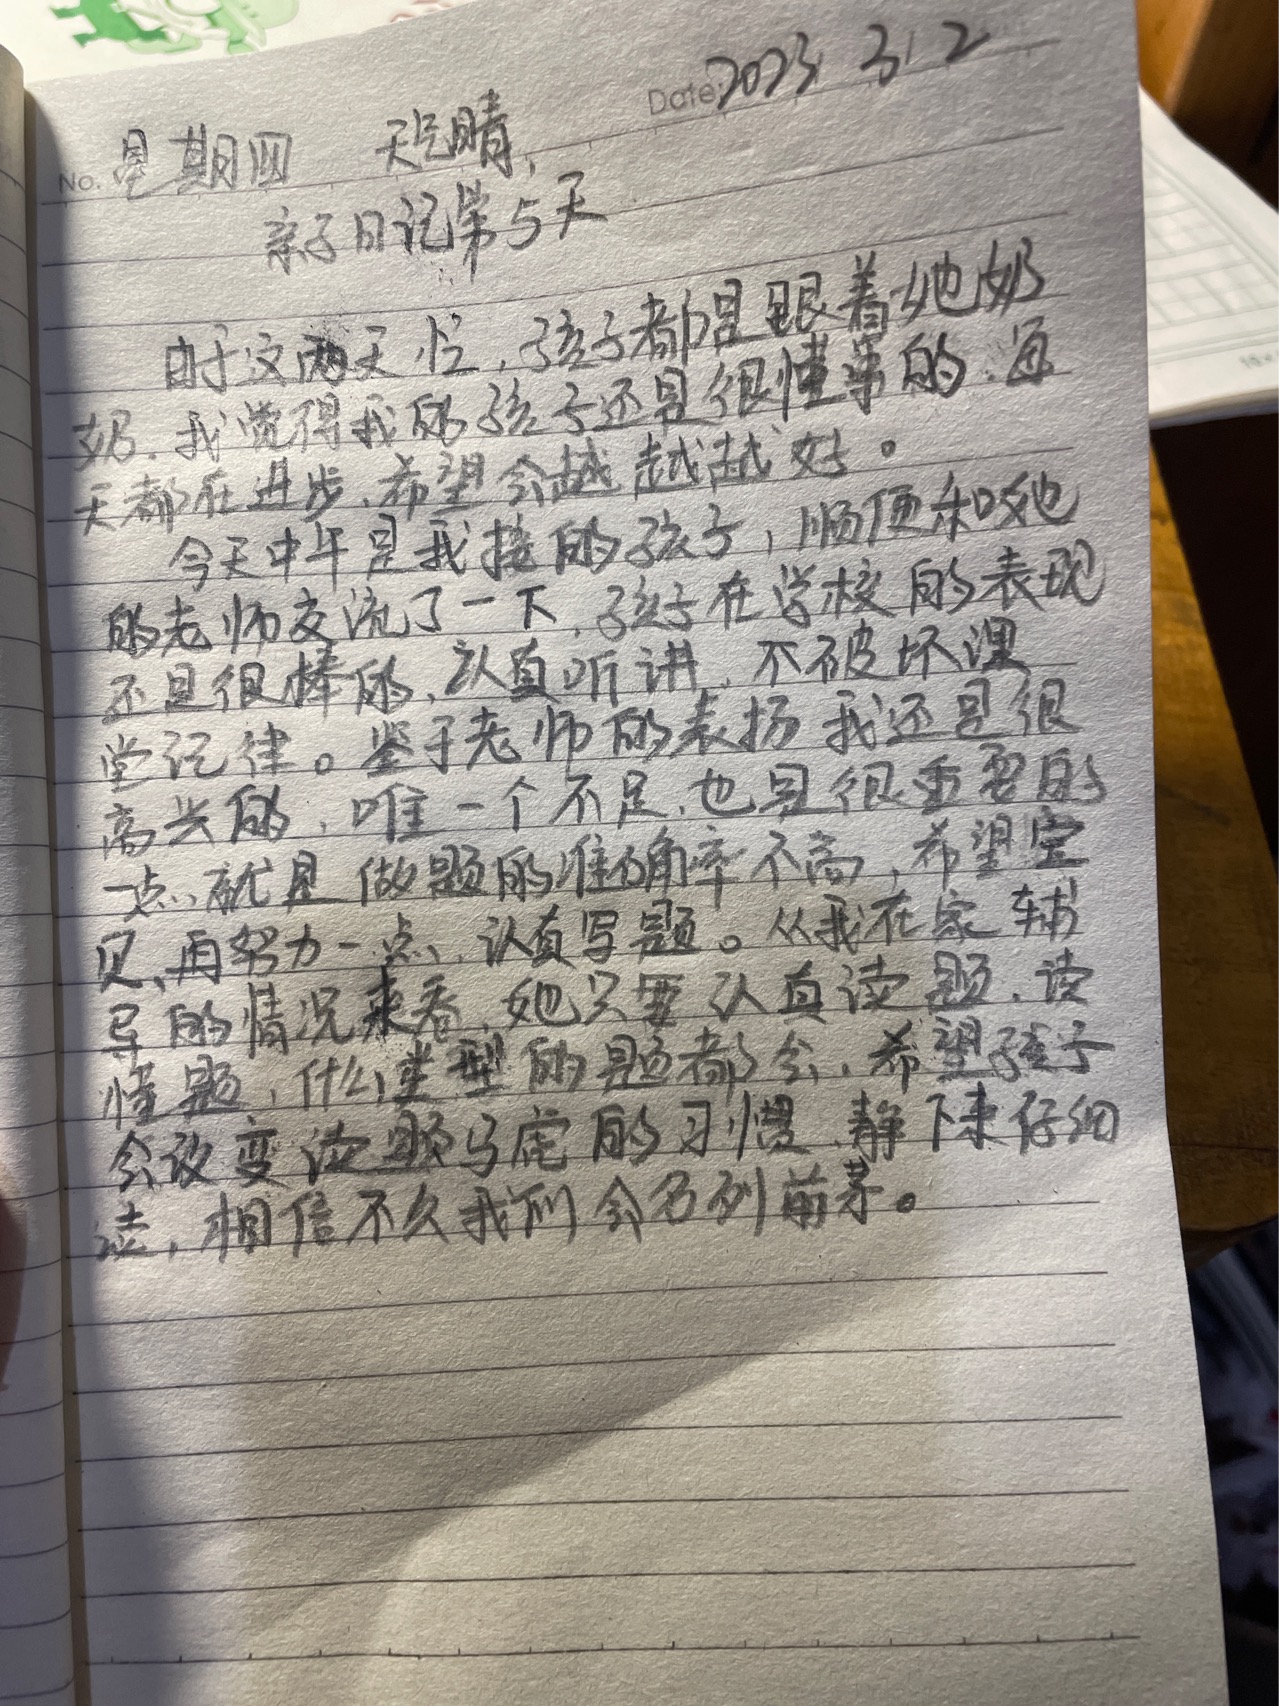 Date: 2023 3 2
No. 星期四 天气晴,
亲子日记第5天
由于这两天忙,孩子都是跟着她奶
奶.我觉得我的孩子还是很懂事的.每
天都在进步,希望会越越越好。
今天中午是我接的孩子,顺便和她
的老师交流了一下,孩子在学校的表现
还是很棒的,认真听讲,不破坏课
堂记律。鉴于老师的表扬我还是很
高兴的,唯一个不足,也是很重要的
一点,就是做题的准确率不高,希望宝
贝,再努力一点,认真写题。从我在家辅
导的情况来看,她只要认真读题,读
懂题,什么类型的题都会,希望孩子
会改变读题马虎的习惯,静下来仔细
读,相信不久我们会名列前茅。